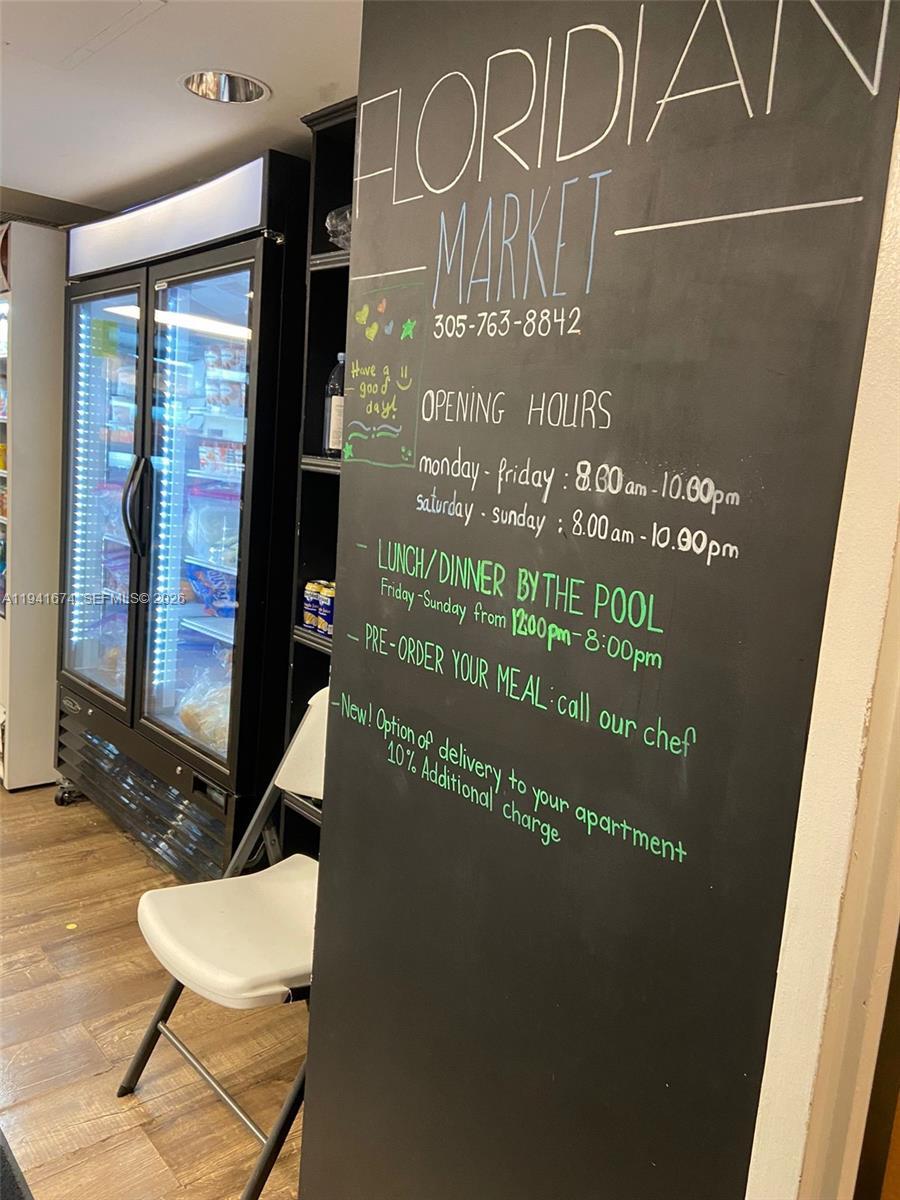 FLORIDIAN
MARKET
305-763-8842
Have a
good
day!
OPENING HOURS
monday - friday : 8.00 am - 10.00pm
saturday - sunday : 8.00 am - 10.00pm
- LUNCH/DINNER BY THE POOL
Friday - Sunday from 12:00pm - 8:00pm
- PRE-ORDER YOUR MEAL: call our chef
- New! Option of delivery to your apartment
10% Additional charge
A11941674, SEFMLS © 2026